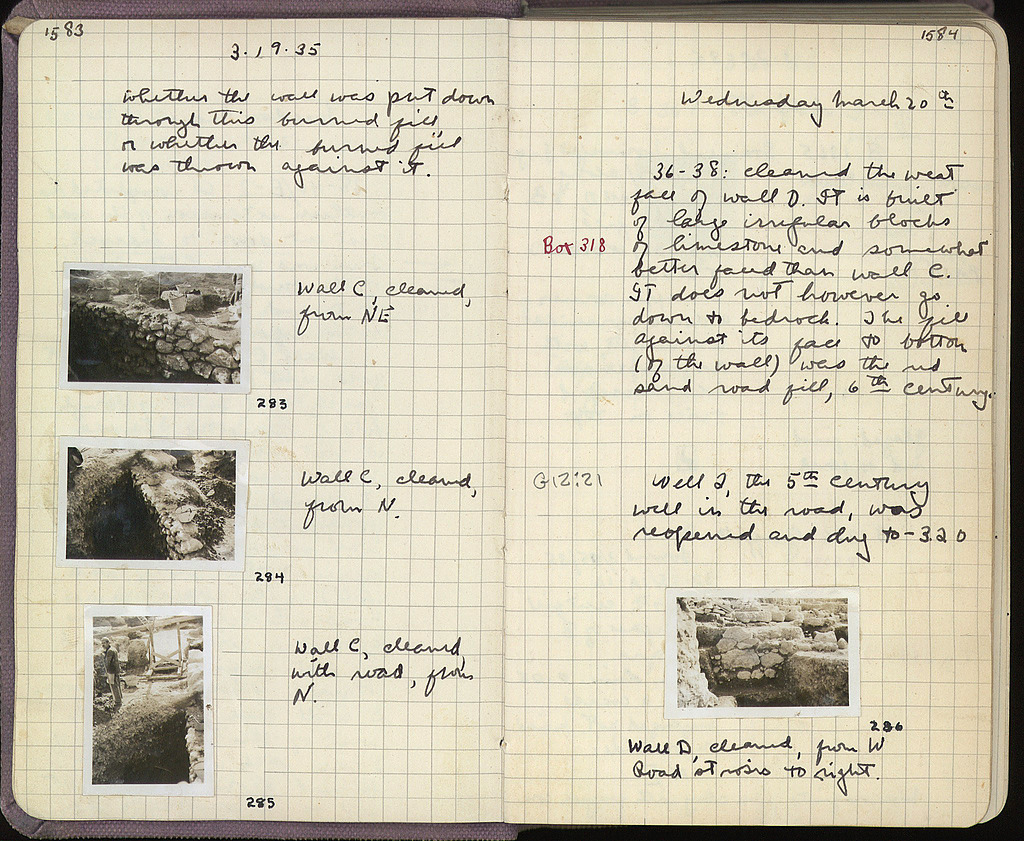 1583
3.19.35
whether the wall was put down
through this burned fill
or whether the burned fill
was thrown against it.
Wall C, cleaned,
from NE
283
Wall C, cleaned,
from N.
284
Wall C, cleaned,
with road, from
N.
285
1584
Wednesday March 20th
36-38: cleaned the west
face of wall D. It is built
of large irregular blocks
Box 318
of limestone and somewhat
better faced than wall C.
It does not however go
down to bedrock. The fill
against its face to bottom
(of the wall) was the red
sand road fill, 6th century.
G12:21
Well I, the 5th century
well in the road, was
reopened and dug to -3.20
286
Wall D, cleaned, from W
Road strosis to right.